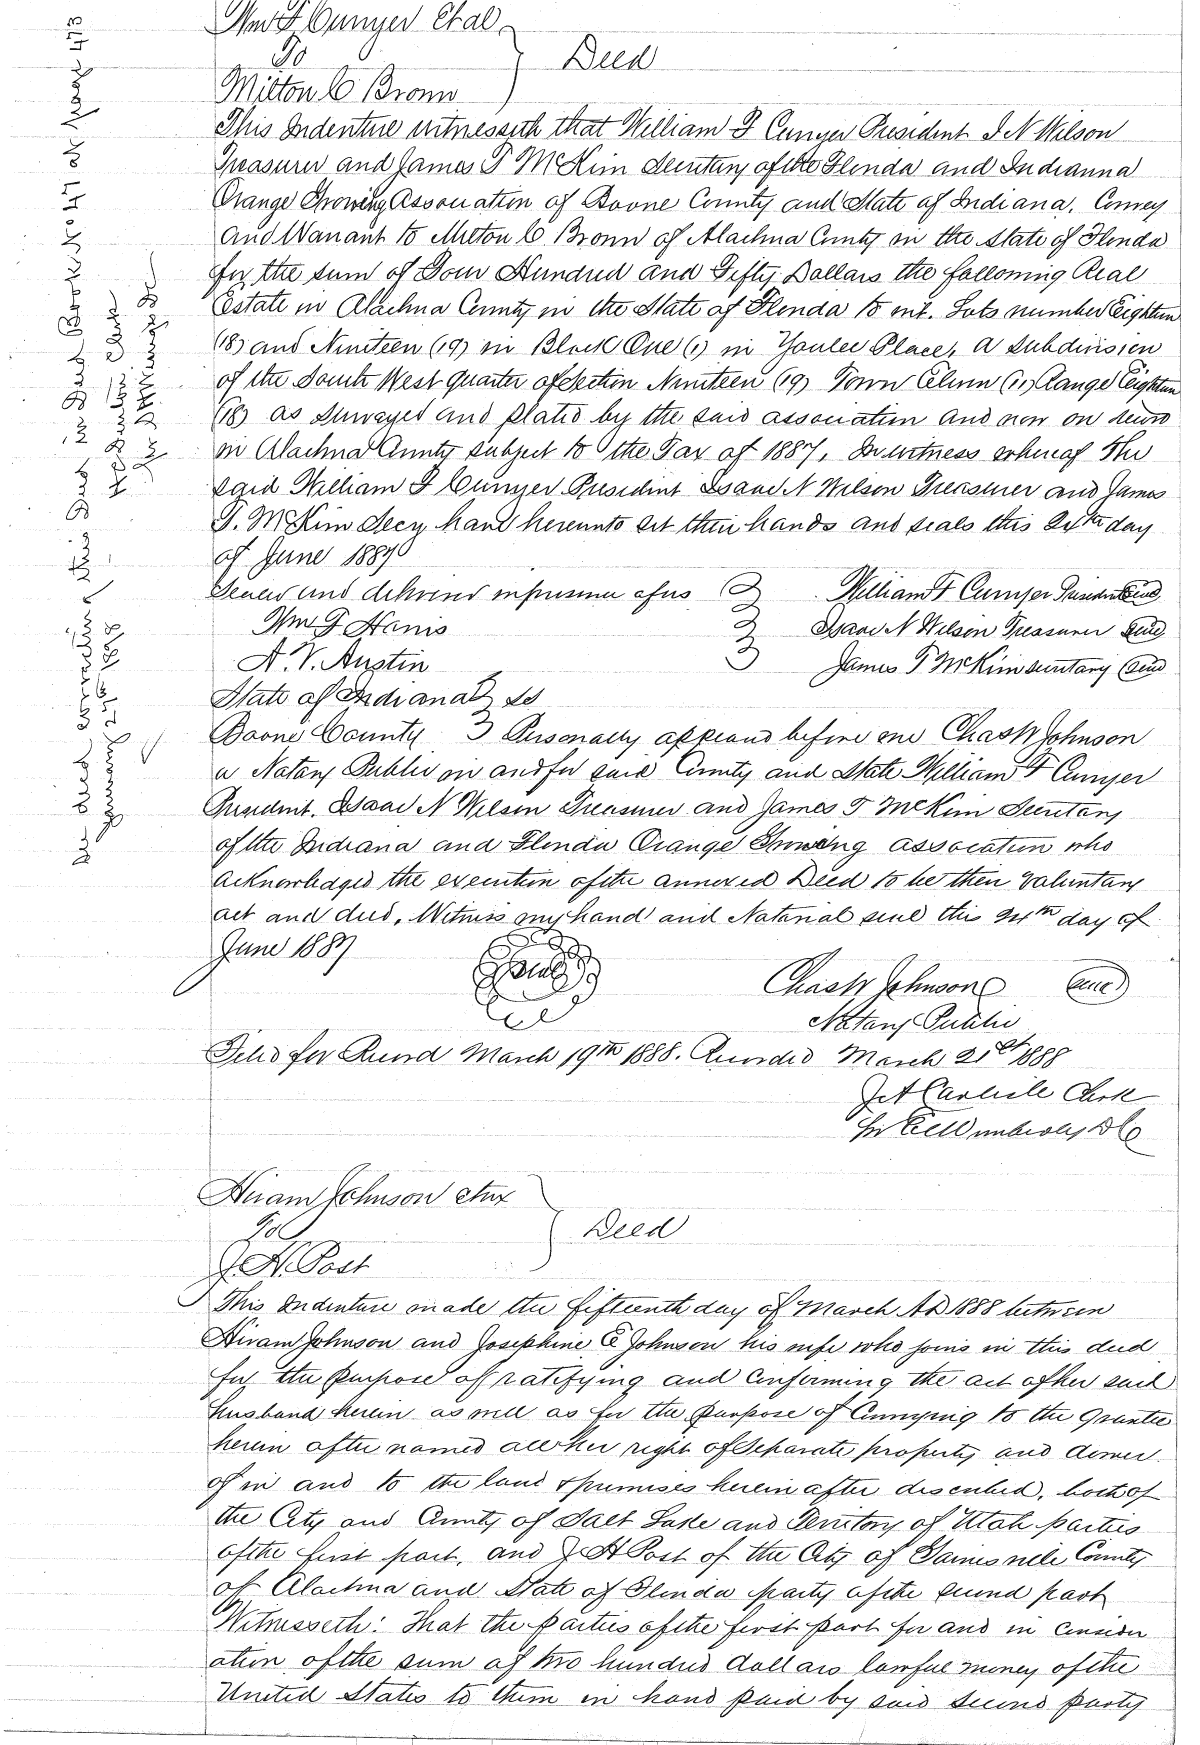 Wm F Cunyer Etal
To
Deed
Milton C Bronn
This Indenture witnesseth that William F Cunyer President I N Wilson
Treasurer and James T McKim Secretary of the Florida and Indianna
Orange Growing Association of Boone County and State of Indiana. Convey
and Warrant to Milton C Bronn of Alachua County in the State of Florida
for the sum of Four Hundred and Fifty Dollars the following Real
Estate in Alachua County in the State of Florida to wit. Lots number Eighteen
(18) and Nineteen (19) in Block One (1) in Youlee Place, a subdivision
of the South West quarter of Section Nineteen (19) Town Eleven (11) Range Eighteen
(18) as surveyed and plated by the said association and now on record
in Alachua County subject to the Tax of 1887, In witness whereof the
said William F Cunyer President Isaac N Wilson Treasurer and James
T. McKim Secy have hereunto set their hands and seals this 24th day
of June 1887
Sealed and delivered in presence of us William F Cunyer President Seal
Wm G Harris Isaac N Wilson Treasurer Seal
A. V. Austin James T McKim secretary Seal
State of Indiana ss
Boone County Personally appeared before me Chas W Johnson
a Notary Public in and for said County and State William F Cunyer
President. Isaac N Wilson Treasurer and James T McKim Secretary
of the Indiana and Florida Orange Growing association who
acknowledged the execution of the annexed Deed to be their voluntary
act and deed. Witness my hand and Notarial seal this 24th day of
June 1887
Seal
Chas W Johnson Seal
Notary Public
Filed for Record March 19th 1888. Recorded March 21st 1888
J A Carlisle Clerk
DC
Hiram Johnson etux
To
Deed
J. H. Post
This Indenture made the fifteenth day of March AD 1888 between
Hiram Johnson and Josephine E Johnson his wife who joins in this deed
for the purpose of ratifying and confirming the act of her said
husband herein as well as for the purpose of Conveying to the grantee
herein after named all her right of separate property and dower
of in and to the land & premises herein after described, both of
the City and County of Salt Lake and Territory of Utah parties
of the first part, and J H Post of the City of Gainesville County
of Alachua and State of Florida party of the second part
Witnesseth: That the parties of the first part for and in consider
ation of the sum of two hundred dollars lawful money of the
United States to them in hand paid by said second party